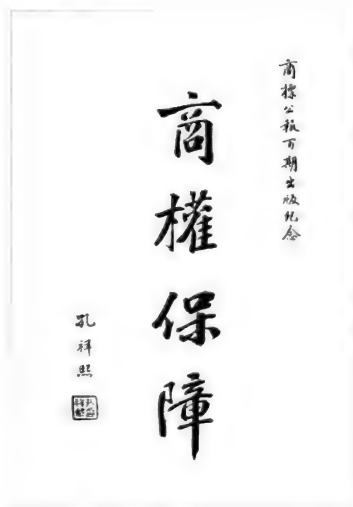 商標公報百期出版紀念
商權保障
孔祥熙